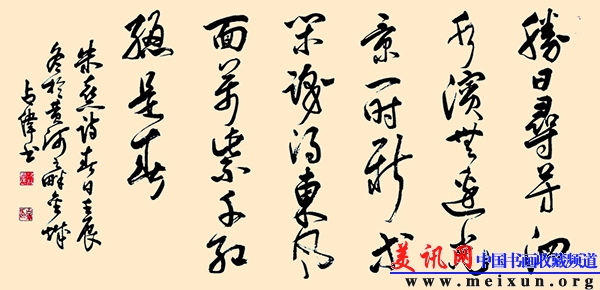 勝日尋芳泗
水濱無邊光
景一时新等
闲識得東風
面萬紫千红
總是春
朱熹詩春日壬辰
冬於黄河之畔金城
占偉书
美讯网
中国书画收藏频道
www.meixun.org